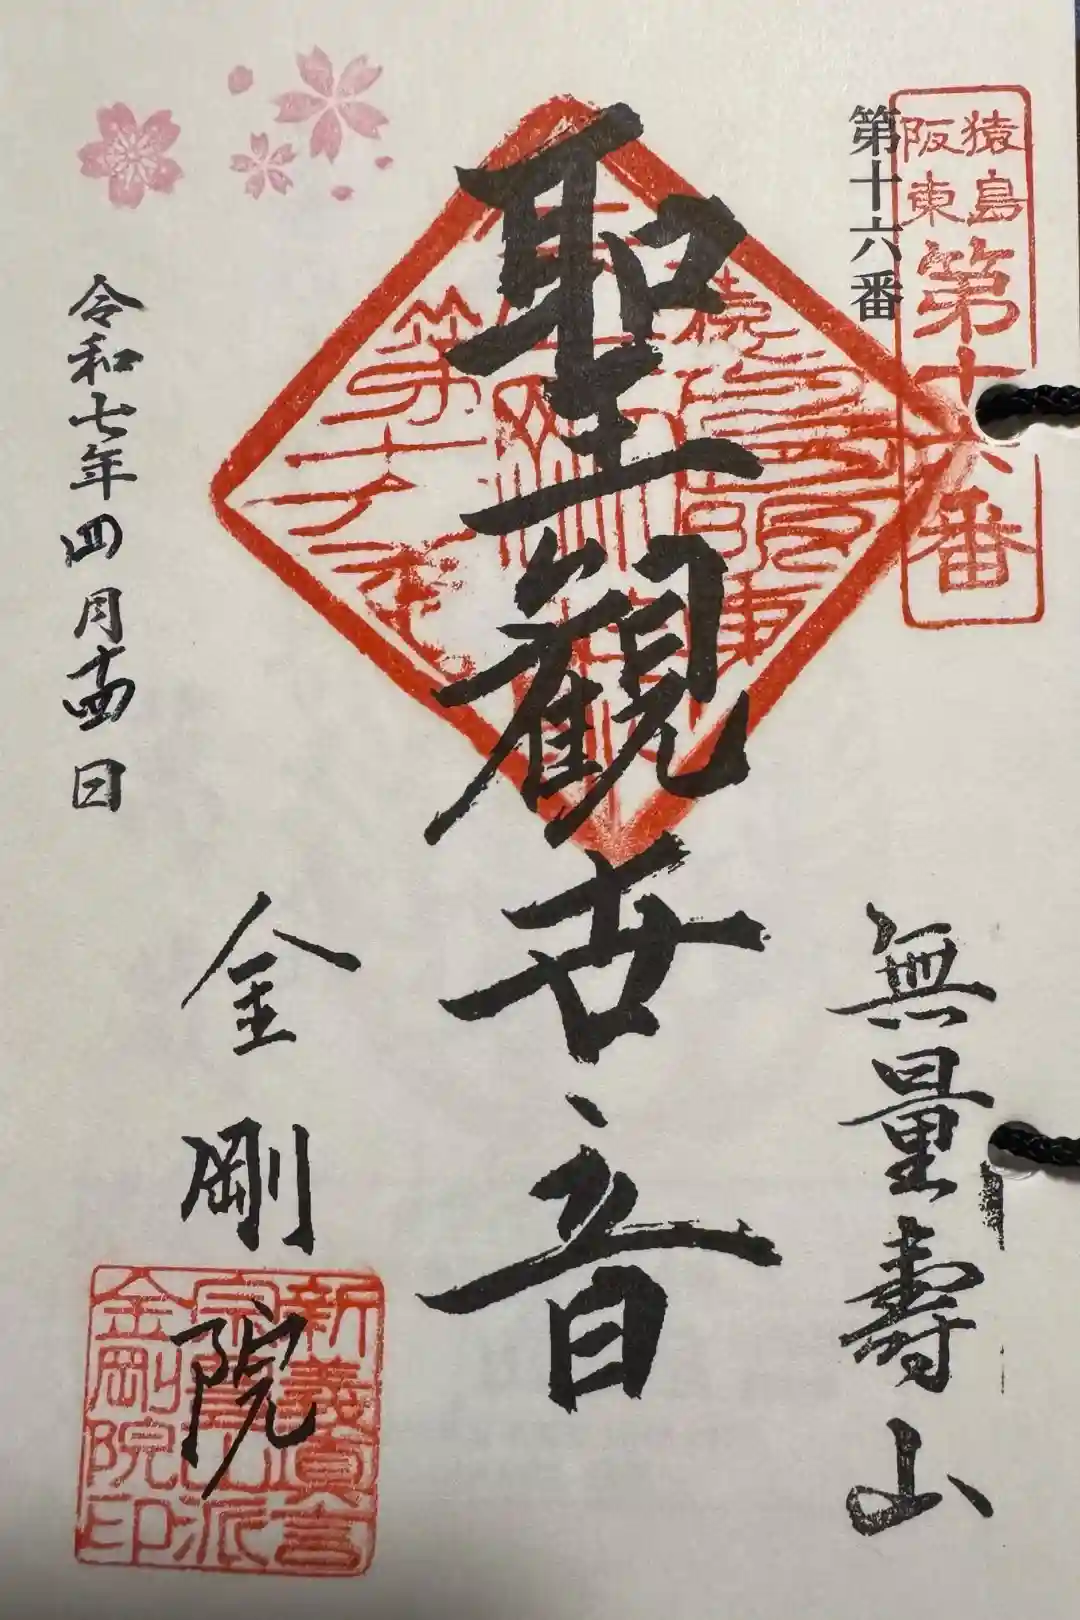 猿島
阪東
第十六番
第十六番
無量壽山
聖観世音
金剛院
令和七年四月十四日
新義真言
宗豊山派
金剛院印